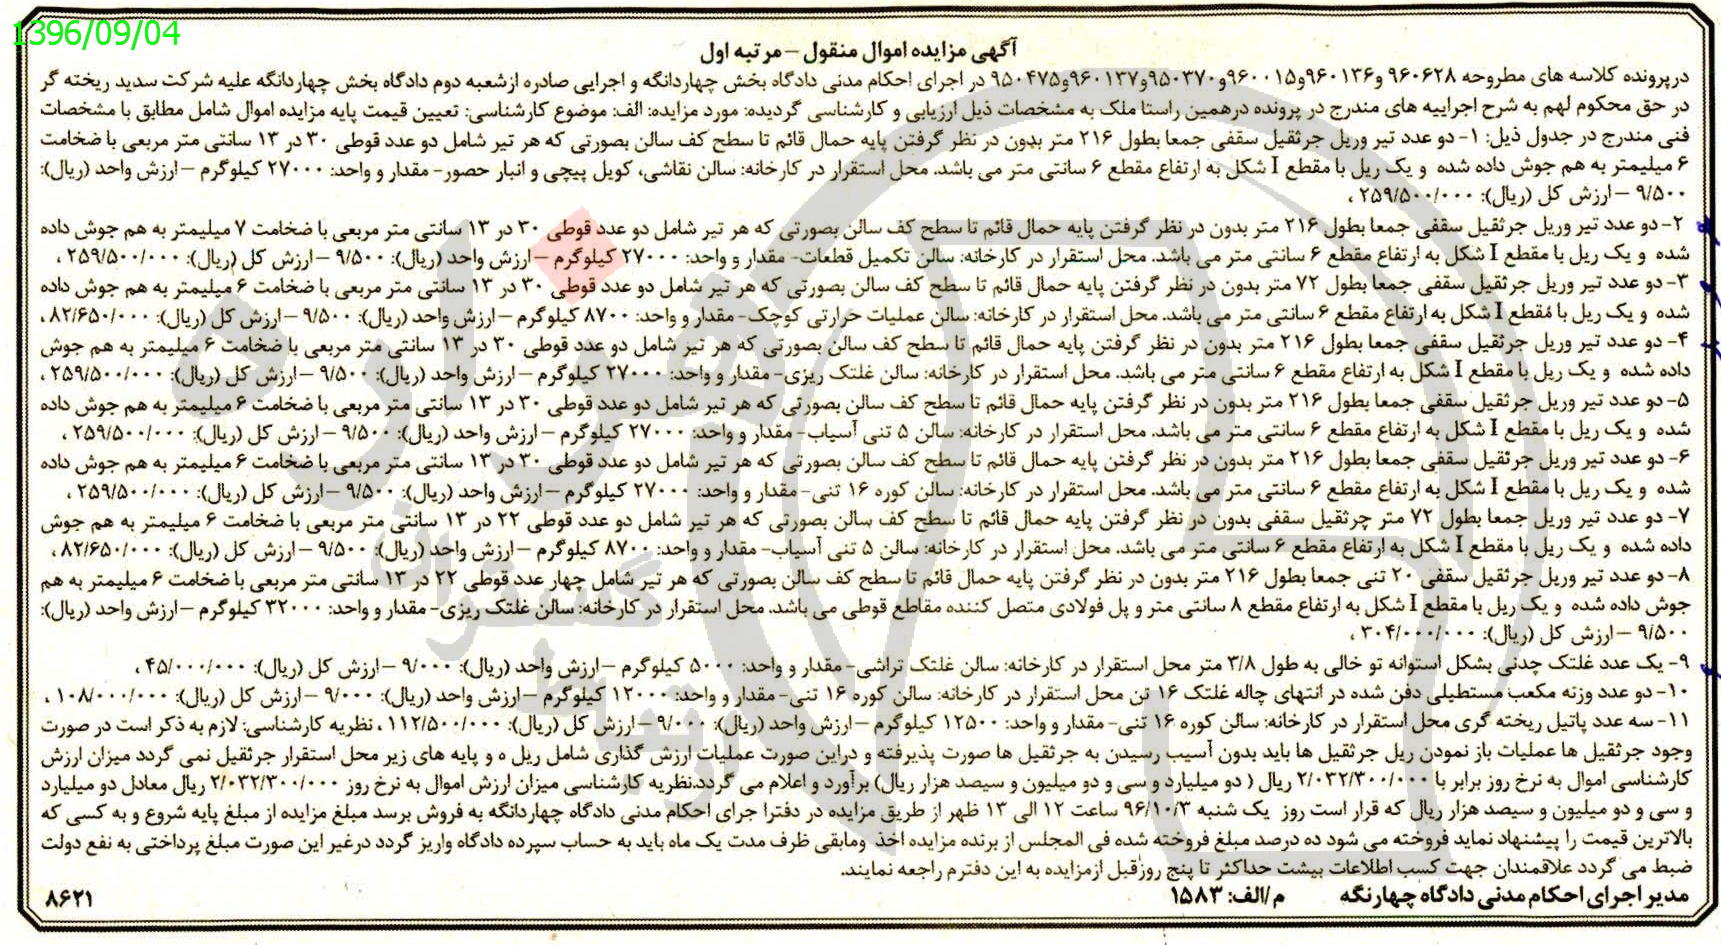 1396/09/04
آگهی مزایده اموال منقول – مرتبه اول
درپرونده کلاسه های مطروحه ۹۶۰۶۲۸ و۹۶۰۱۳۶و۹۶۰۰۱۵و۹۵۰۳۷۰و۹۶۰۱۳۷و۹۵۰۴۷۵ در اجرای احکام مدنی دادگاه بخش چهاردانگه و اجرایی صادره ازشعبه دوم دادگاه بخش چهاردانگه علیه شرکت سدید ریخته گر
در حق محکوم لهم به شرح اجراییه های مندرج در پرونده درهمین راستا ملک به مشخصات ذیل ارزیابی و کارشناسی گردیده: مورد مزایده: الف: موضوع کارشناسی: تعیین قیمت پایه مزایده اموال شامل مطابق با مشخصات
فنی مندرج در جدول ذیل: ۱- دو عدد تیر وریل جرثقیل سقفی جمعا بطول ۲۱۶ متر بدون در نظر گرفتن پایه حمال قائم تا سطح کف سالن بصورتی که هر تیر شامل دو عدد قوطی ۳۰ در ۱۳ سانتی متر مربعی با ضخامت
۶ میلیمتر به هم جوش داده شده و یک ریل با مقطع I شکل به ارتفاع مقطع ۶ سانتی متر می باشد. محل استقرار در کارخانه: سالن نقاشی، کویل پیچی و انبار حصور- مقدار و واحد: ۲۷۰۰۰ کیلوگرم –ارزش واحد (ریال):
۹/۵۰۰ –ارزش کل (ریال): ۲۵۹/۵۰۰/۰۰۰ ،
۲- دو عدد تیر وریل جرثقیل سقفی جمعا بطول ۲۱۶ متر بدون در نظر گرفتن پایه حمال قائم تا سطح کف سالن بصورتی که هر تیر شامل دو عدد قوطی ۳۰ در ۱۳ سانتی متر مربعی با ضخامت ۷ میلیمتر به هم جوش داده
شده و یک ریل با مقطع I شکل به ارتفاع مقطع ۶ سانتی متر می باشد. محل استقرار در کارخانه: سالن تکمیل قطعات- مقدار و واحد: ۲۷۰۰۰ کیلوگرم –ارزش واحد (ریال): ۹/۵۰۰ –ارزش کل (ریال): ۲۵۹/۵۰۰/۰۰۰ ،
۳- دو عدد تیر وریل جرثقیل سقفی جمعا بطول ۷۲ متر بدون در نظر گرفتن پایه حمال قائم تا سطح کف سالن بصورتی که هر تیر شامل دو عدد قوطی ۳۰ در ۱۳ سانتی متر مربعی با ضخامت ۶ میلیمتر به هم جوش داده
شده و یک ریل با مقطع I شکل به ارتفاع مقطع ۶ سانتی متر می باشد. محل استقرار در کارخانه: سالن عملیات حرارتی کوچک- مقدار و واحد: ۸۷۰۰ کیلوگرم –ارزش واحد (ریال): ۹/۵۰۰ –ارزش کل (ریال): ۸۲/۶۵۰/۰۰۰ ،
۴- دو عدد تیر وریل جرثقیل سقفی جمعا بطول ۲۱۶ متر بدون در نظر گرفتن پایه حمال قائم تا سطح کف سالن بصورتی که هر تیر شامل دو عدد قوطی ۳۰ در ۱۳ سانتی متر مربعی با ضخامت ۶ میلیمتر به هم جوش
داده شده و یک ریل با مقطع I شکل به ارتفاع مقطع ۶ سانتی متر می باشد. محل استقرار در کارخانه: سالن غلتک ریزی- مقدار و واحد: ۲۷۰۰۰ کیلوگرم –ارزش واحد (ریال): ۹/۵۰۰ –ارزش کل (ریال): ۲۵۹/۵۰۰/۰۰۰ ،
۵- دو عدد تیر وریل جرثقیل سقفی جمعا بطول ۲۱۶ متر بدون در نظر گرفتن پایه حمال قائم تا سطح کف سالن بصورتی که هر تیر شامل دو عدد قوطی ۳۰ در ۱۳ سانتی متر مربعی با ضخامت ۶ میلیمتر به هم جوش داده
شده و یک ریل با مقطع I شکل به ارتفاع مقطع ۶ سانتی متر می باشد. محل استقرار در کارخانه: سالن ۵ تنی آسیاب- مقدار و واحد: ۲۷۰۰۰ کیلوگرم –ارزش واحد (ریال): ۹/۵۰۰ –ارزش کل (ریال): ۲۵۹/۵۰۰/۰۰۰ ،
۶- دو عدد تیر وریل جرثقیل سقفی جمعا بطول ۲۱۶ متر بدون در نظر گرفتن پایه حمال قائم تا سطح کف سالن بصورتی که هر تیر شامل دو عدد قوطی ۳۰ در ۱۳ سانتی متر مربعی با ضخامت ۶ میلیمتر به هم جوش داده
شده و یک ریل با مقطع I شکل به ارتفاع مقطع ۶ سانتی متر می باشد. محل استقرار در کارخانه: سالن کوره ۱۶ تنی- مقدار و واحد: ۲۷۰۰۰ کیلوگرم –ارزش واحد (ریال): ۹/۵۰۰ –ارزش کل (ریال): ۲۵۹/۵۰۰/۰۰۰ ،
۷- دو عدد تیر وریل جمعا بطول ۷۲ متر جرثقیل سقفی بدون در نظر گرفتن پایه حمال قائم تا سطح کف سالن بصورتی که هر تیر شامل دو عدد قوطی ۲۲ در ۱۳ سانتی متر مربعی با ضخامت ۶ میلیمتر به هم جوش
داده شده و یک ریل با مقطع I شکل به ارتفاع مقطع ۶ سانتی متر می باشد. محل استقرار در کارخانه: سالن ۵ تنی آسیاب- مقدار و واحد: ۸۷۰۰ کیلوگرم –ارزش واحد (ریال): ۹/۵۰۰ –ارزش کل (ریال): ۸۲/۶۵۰/۰۰۰ ،
۸- دو عدد تیر وریل جرثقیل سقفی ۲۰ تنی جمعا بطول ۲۱۶ متر بدون در نظر گرفتن پایه حمال قائم تا سطح کف سالن بصورتی که هر تیر شامل چهار عدد قوطی ۲۲ در ۱۳ سانتی متر مربعی با ضخامت ۶ میلیمتر به هم
جوش داده شده و یک ریل با مقطع I شکل به ارتفاع مقطع ۸ سانتی متر و پل فولادی متصل کننده مقاطع قوطی می باشد. محل استقرار در کارخانه: سالن غلتک ریزی- مقدار و واحد: ۳۲۰۰۰ کیلوگرم –ارزش واحد (ریال):
۹/۵۰۰ –ارزش کل (ریال): ۳۰۴/۰۰۰/۰۰۰ ،
۹- یک عدد غلتک چدنی بشکل استوانه تو خالی به طول ۳/۸ متر محل استقرار در کارخانه: سالن غلتک تراشی- مقدار و واحد: ۵۰۰۰ کیلوگرم –ارزش واحد (ریال): ۹/۰۰۰ –ارزش کل (ریال): ۴۵/۰۰۰/۰۰۰ ،
۱۰- دو عدد وزنه مکعب مستطیلی دفن شده در انتهای چاله غلتک ۱۶ تن محل استقرار در کارخانه: سالن کوره ۱۶ تنی- مقدار و واحد: ۱۲۰۰۰ کیلوگرم –ارزش واحد (ریال): ۹/۰۰۰ –ارزش کل (ریال): ۱۰۸/۰۰۰/۰۰۰ ،
۱۱- سه عدد پاتیل ریخته گری محل استقرار در کارخانه: سالن کوره ۱۶ تنی- مقدار و واحد: ۱۲۵۰۰ کیلوگرم –ارزش واحد (ریال): ۹/۰۰۰ –ارزش کل (ریال): ۱۱۲/۵۰۰/۰۰۰ ، نظریه کارشناسی: لازم به ذکر است در صورت
وجود جرثقیل ها عملیات باز نمودن ریل جرثقیل ها باید بدون آسیب رسیدن به جرثقیل ها صورت پذیرفته و دراین صورت عملیات ارزش گذاری شامل ریل ه و پایه های زیر محل استقرار جرثقیل نمی گردد میزان ارزش
کارشناسی اموال به نرخ روز برابر با ۲/۰۳۲/۳۰۰/۰۰۰ ریال ( دو میلیارد و سی و دو میلیون و سیصد هزار ریال) برآورد و اعلام می گردد.نظریه کارشناسی میزان ارزش اموال به نرخ روز ۲/۰۳۲/۳۰۰/۰۰۰ ریال معادل دو میلیارد
و سی و دو میلیون و سیصد هزار ریال که قرار است روز یک شنبه ۹۶/۱۰/۳ ساعت ۱۲ الی ۱۳ ظهر از طریق مزایده در دفترا جرای احکام مدنی دادگاه چهاردانگه به فروش برسد مبلغ مزایده از مبلغ پایه شروع و به کسی که
بالاترین قیمت را پیشنهاد نماید فروخته می شود ده درصد مبلغ فروخته شده فی المجلس از برنده مزایده اخذ ومابقی ظرف مدت یک ماه باید به حساب سپرده دادگاه واریز گردد درغیر این صورت مبلغ پرداختی به نفع دولت
ضبط می گردد علاقمندان جهت کسب اطلاعات بیشت حداکثر تا پنج روزقبل ازمزایده به این دفترم راجعه نمایند.
مدیر اجرای احکام مدنی دادگاه چهارنگه م/الف: ۱۵۸۳ ۸۶۲۱